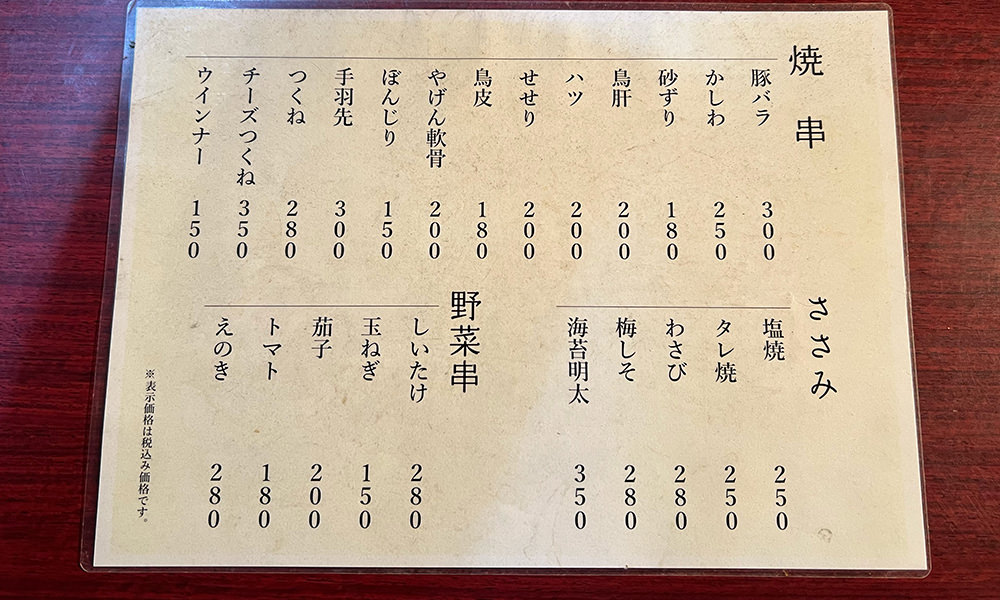 焼串
豚バラ 300
かしわ 250
砂ずり 180
鳥肝 200
ハツ 200
せせり 200
鳥皮 180
やげん軟骨 200
ぼんじり 150
手羽先 300
つくね 280
チーズつくね 350
ウインナー 150
ささみ
塩焼 250
タレ焼 250
わさび 280
梅しそ 280
海苔明太 350
野菜串
しいたけ 280
玉ねぎ 150
茄子 200
トマト 180
えのき 280
※表示価格は税込み価格です。